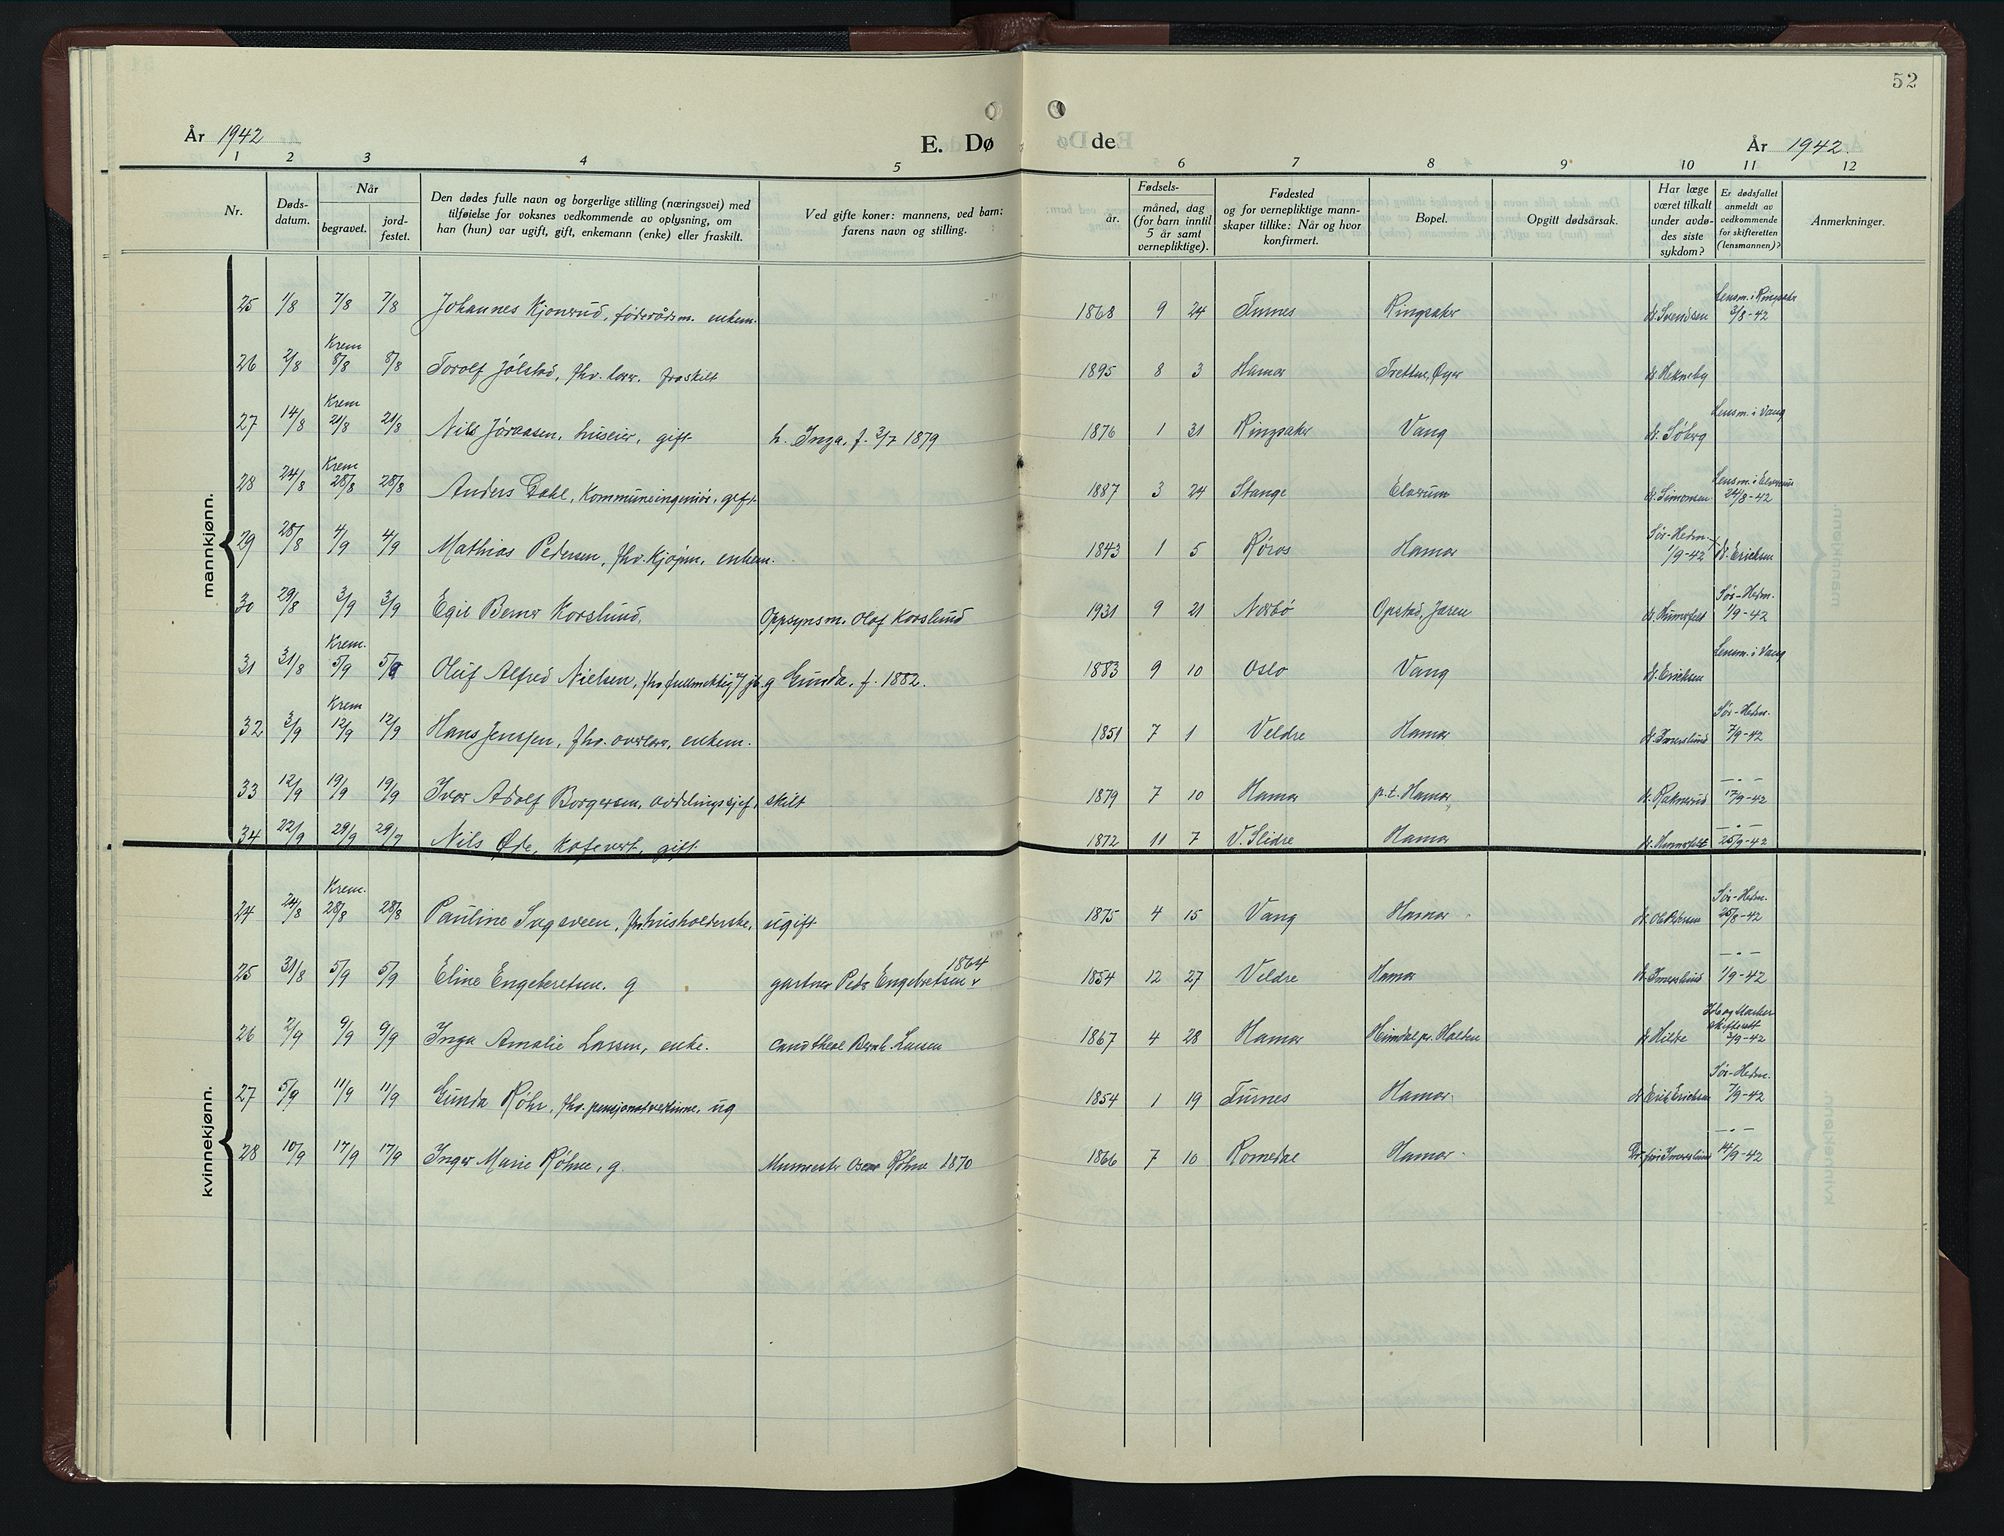 52
År 1942
E. Dø
de
År 1942.
1 2 3 4 5 6 7 8 9 10 11 12
Nr.
Døds-
datum.
Når
begravet.
jord-
festet.
Den dødes fulle navn og borgerlige stilling (næringsvei) med
tilføielse for voksnes vedkommende av oplysning, om
han (hun) var ugift, gift, enkemann (enke) eller fraskilt.
Ved gifte koner: mannens, ved barn:
farens navn og stilling.
Fødsels-
år.
måned, dag
(for barn inntil
5 år samt
vernepliktige).
Fødested
og for vernepliktige mann-
skaper tillike: Når og hvor
konfirmert.
Bopel.
Opgitt dødsårsak.
Har læge
været tilkalt
under avdø-
des siste
sykdom?
Er dødsfallet
anmeldt av
vedkommende
for skifteretten
(lensmannen)?
Anmerkninger.
mannkjønn.
25 1/8 7/8 7/8 Johannes Kjonrud, føderådsm. enkem. 1868 9 24 Furnes Ringsaker dr. Svendsen Lensm. i Ringsaker 3/8-42
26 2/8 Krem 8/8 8/8 Torolf Jølstad, fhv. lærer. fraskilt 1895 8 3 Hamar Tretten, Øyer dr. Hekneby
27 14/8 Krem 21/8 21/8 Nils Jøraasen, huseier, gift h. Inga, f. 3/7 1879 1876 1 31 Ringsaker Vang dr. Søberg Lensm. i Vang
28 24/8 Krem 28/8 28/8 Anders Dahl, kommuneingeniør, gift 1887 3 24 Stange Elverum dr. Simonsen Lensm. i Elverum 24/8-42
29 28/8 4/9 4/9 Mathias Pedersen, fhv. kjøpm. enkem. 1843 1 5 Røros Hamar Sør-Hedm. 1/9-42 dr. Ericksen
30 29/8 3/9 3/9 Egil Berner Korslund, Oppsynsm. Olaf Korslund 1931 9 21 Nærbø Opstad, Jæren dr. Humerfelt Sør-Hedm. 1/9-42
31 31/8 Krem. 5/9 5/9 Oluf Alfred Nielsen, fhv fullmektig v/ jb. g Gunda, f. 1882. 1883 9 10 Oslo Vang dr. Ericksen Lensm. i Vang
32 3/9 Krem 12/9 12/9 Hans Jenssen, fhv. overlærer, enkem. 1851 7 1 Veldre Hamar dr. Imerslund Sør-Hedm. 7/9-42
33 12/9 19/9 19/9 Ivar Adolf Borgersen, avdelingssjef, skilt 1879 7 10 Hamar p.t. Hamar, dr. Raknerud -"- 17/9-42
34 22/9 29/9 29/9 Nils Øde, kafévert, gift 1872 11 7 V. Slidre Hamar dr. Humerfelt -"- 25/9-42
kvinnekjønn.
24 24/8 Krem. 28/8 28/8 Pauline Ingsveen, fhv. husholderske, ugift 1875 4 15 Vang Hamar dr. Sør-Hedm. 25/8-42
25 31/8 5/9 5/9 Eline Engebretsen. g gartner Peder Engebretsen 1864 1854 12 27 Veldre Hamar dr. Imerslund -"- 1/9-42
26 2/9 9/9 9/9 Inga Amalie Larsen, enke. cand theol Bernh. Larsen 1867 4 28 Hamar Heimdal pr. Halden dr. Hilde Idd og Marker skifterett 3/9-42
27 5/9 11/9 11/9 Gunda Røhr, fhv. pensjonatvertinne, ug 1854 1 19 Furnes Hamar dr. Erik Ericksen Sør-Hedm. 7/9-42
28 10/9 17/9 17/9 Inger Marie Røhne, g. Murmester Oscar Røhne 1870 1866 7 10 Romedal Hamar. Dr. Imerslund -"- 14/9-42